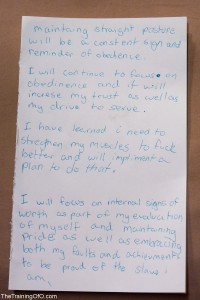 maintaing straight posture
will be a constant sign and
reminder of obedence.
I will continue to focus on
obedinence and it will
increse my trust as well as
my drive to serve.
I have learned i need to
stregthen my muscles to fuck
better and will impliment a
plan to do that.
I will focus on internal signs of
worth as part of my evalucation
of myself and maintaining
pride as well as embracing
both my faults and achivements
to be proud of the slave i
am.
TheTrainingOfO.com